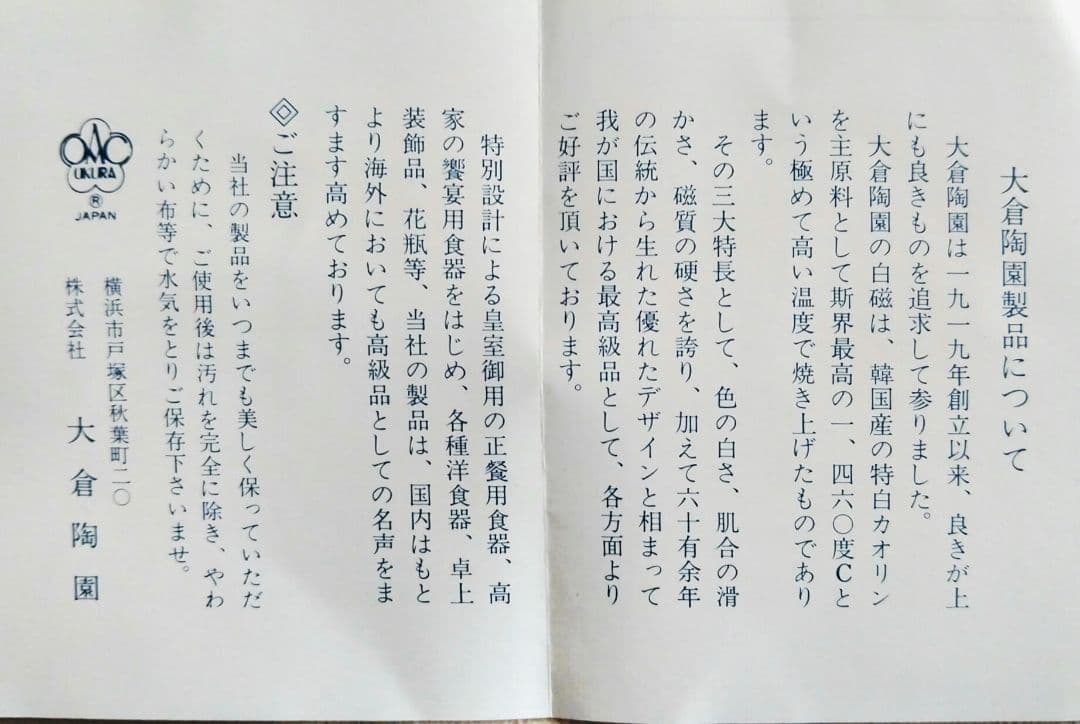 大倉陶園製品について
大倉陶園は一九一九年創立以来、良きが上
にも良きものを追求して参りました。
大倉陶園の白磁は、韓国産の特白カオリン
を主原料として斯界最高の一、四六〇度Cと
いう極めて高い温度で焼き上げたものであり
ます。
その三大特長として、色の白さ、肌合の滑
かさ、磁質の硬さを誇り、加えて六十有余年
の伝統から生れた優れたデザインと相まって
我が国における最高級品として、各方面より
ご好評を頂いております。
特別設計による皇室御用の正餐用食器、高
家の饗宴用食器をはじめ、各種洋食器、卓上
装飾品、花瓶等、当社の製品は、国内はもと
より海外においても高級品としての名声をま
すます高めております。
◈ご注意
当社の製品をいつまでも美しく保っていただ
くために、ご使用後は汚れを完全に除き、やわ
らかい布等で水気をとりご保存下さいませ。
OAC
OKURA
®
JAPAN
横浜市戸塚区秋葉町二〇
株式会社 大倉陶園